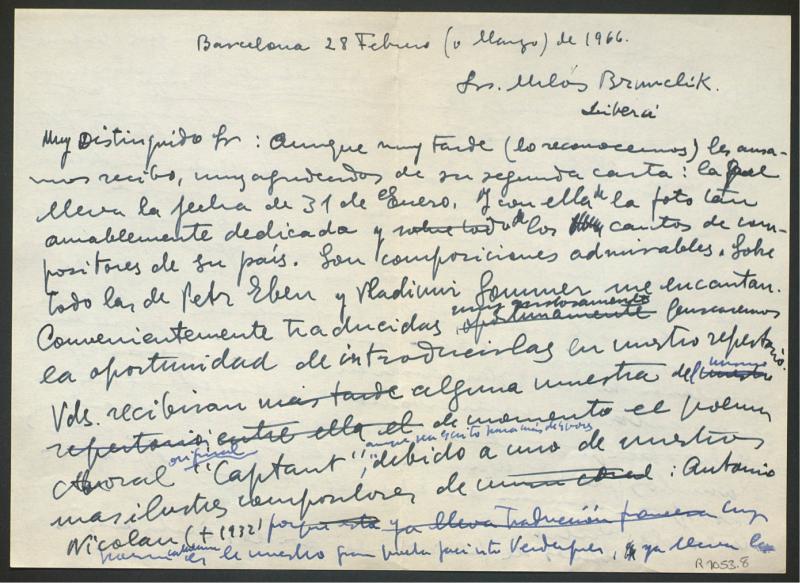 Barcelona 28 Febrero (o Marzo) de 1966.
Srs. Milós Brunclik.
Liberci
Muy Distinguido Sr: Aunque muy tarde (lo reconocemos) les acusa-
mos recibo, muy agradecidos de su segunda carta: la
lleva la fecha de 31 de Enero. Y con ella la foto tan
amablemente dedicada y sobre todo los cantos de com-
positores de su país. Son composiciones admirables. Sobre
todo las de Petr Eben y Vladimir Sommer me encantan.
muy gustosamente
Convenientemente traducidas oportunamente buscaremos
la oportunidad de introducirlas en nuestro repertorio.
mismo
Vds. recibiran mas tarde alguna muestra del nuestro
repertorio; entre ella el de momento el poema
original aunque escrito para más de voces
coral "Captant", debido a uno de nuestros
mas ilustres compositores de : Antonio
Nicolau († 1932) porque esta ya lleva traducción francesa cuyo
poema es de nuestro gran poeta Jacinto Verdaguer, ya lleva la
R 1053.8